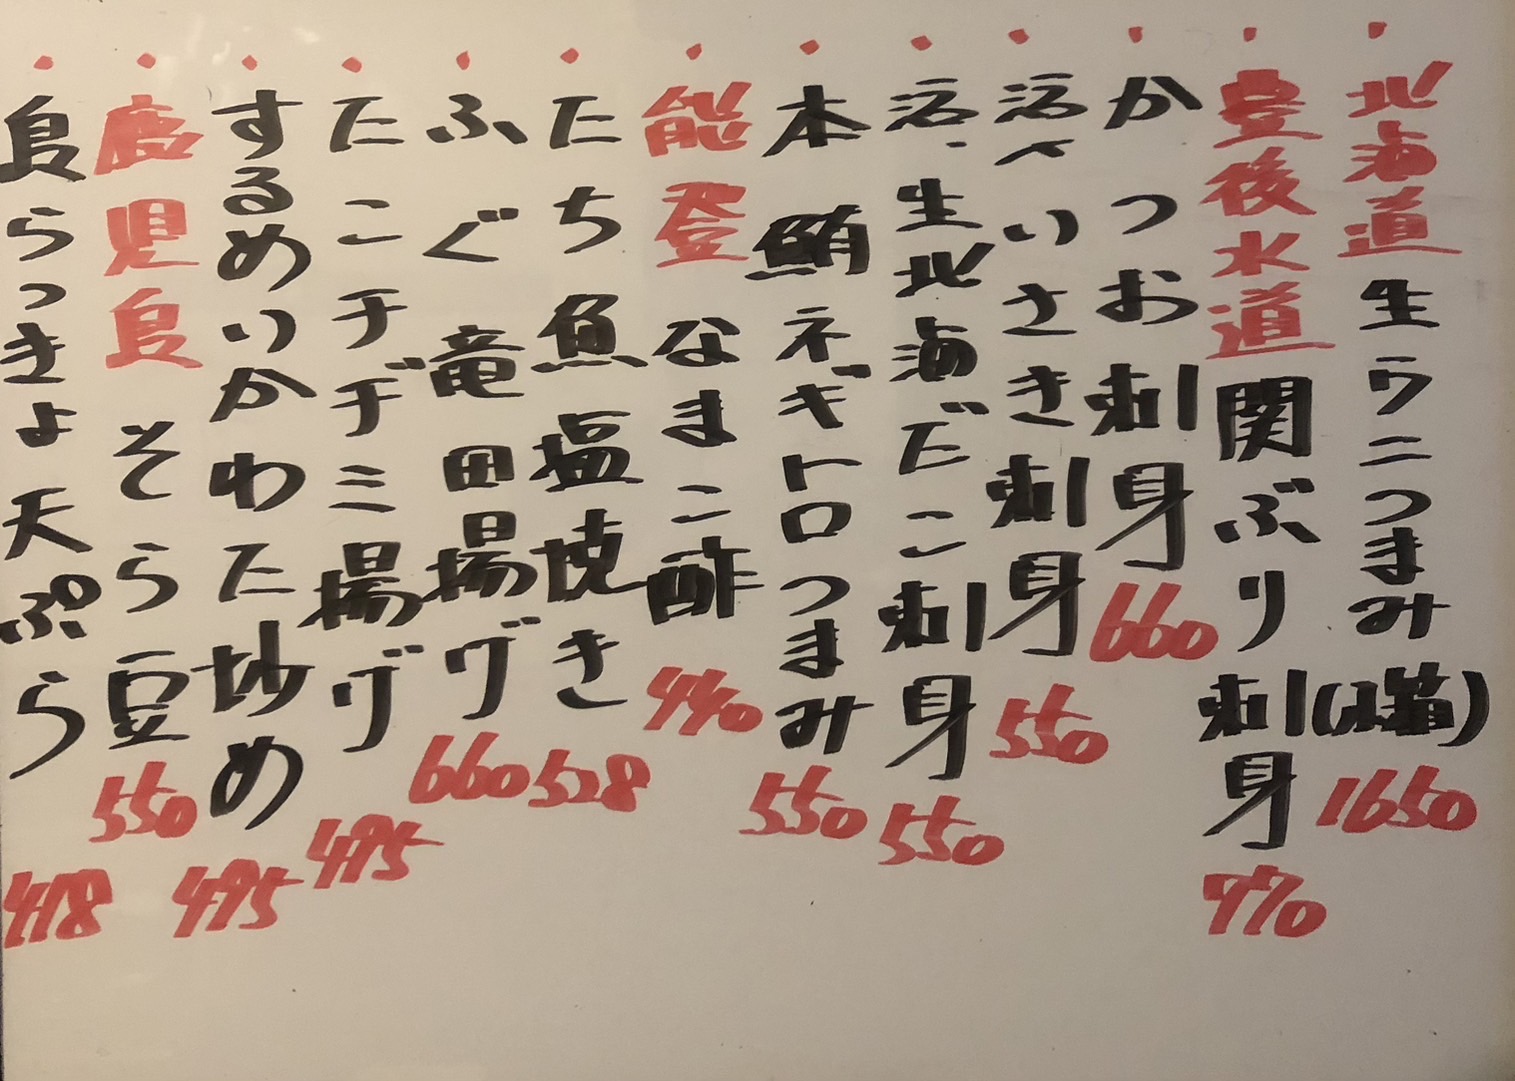 ・北海道生ウニつまみ(小箱) 1650
・豊後水道関ぶり刺身 770
・かつお刺身 660
・活〆いさき刺身 550
・活、生北海だこ刺身 550
・本鮪ネギトロつまみ 550
・能登 なまこ酢 440
・たち魚塩焼き 528
・ふぐ竜田揚げ 660
・たこチヂミ揚げ 495
・するめいかわた炒め 495
・鹿児島 そら豆 550
島らっきょ天ぷら 418